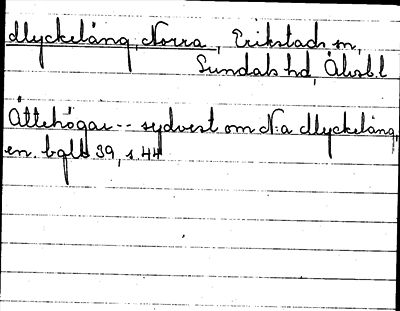 Myckelång, Norra, Erikstads sn,
Sundals hd, Älvsb. l
Ättehögar -- sydvest om N:a Myckelång,
en. bglb 39, s. 44